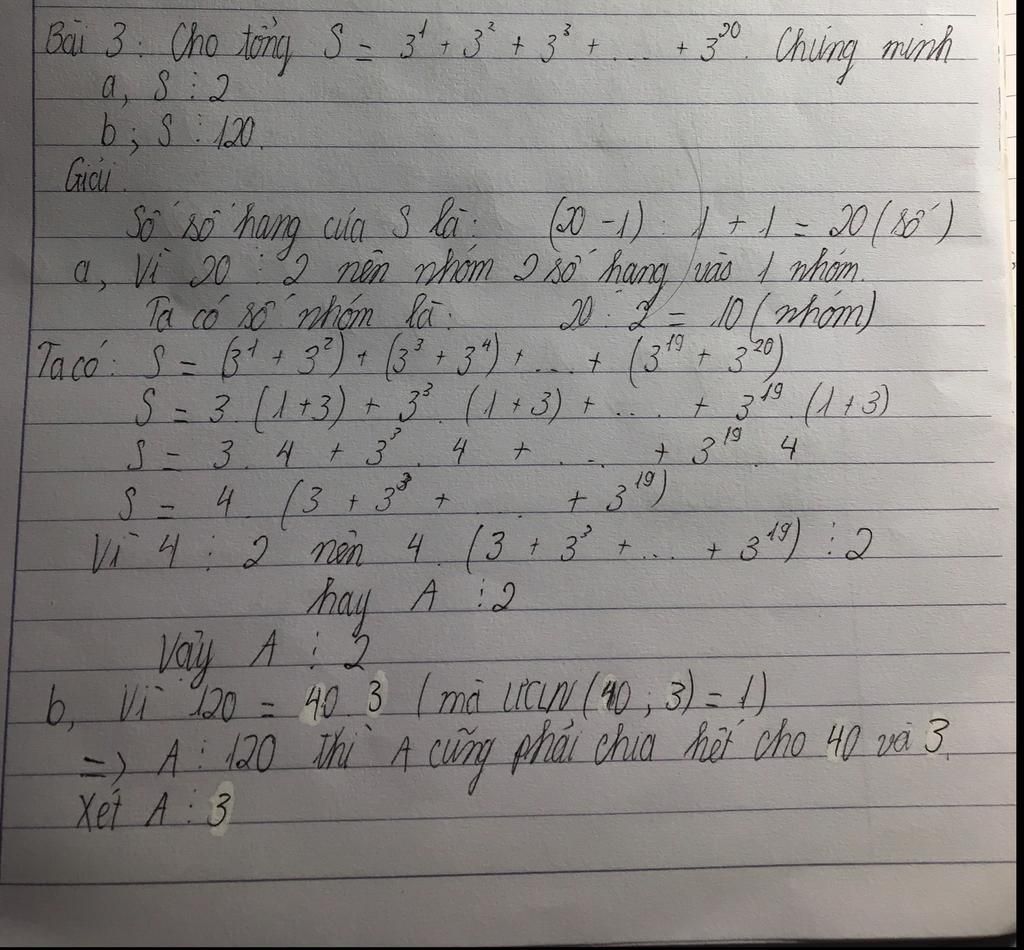 Bài 3: Cho tổng S = 3¹ + 3² + 3³ + ... + 3²⁰. Chứng minh
a, S ⋮ 2
b; S ⋮ 120.
Giải.
Số số hạng của S là: (20 - 1) : 1 + 1 = 20 (số)
a, Vì 20 ⋮ 2 nên nhóm 2 số hạng vào 1 nhóm.
Ta có số nhóm là: 20 : 2 = 10 (nhóm)
Ta có: S = (3¹ + 3²) + (3³ + 3⁴) + ... + (3¹⁹ + 3²⁰)
S = 3. (1+3) + 3³. (1+3) + .... + 3¹⁹. (1+3)
S = 3. 4 + 3³. 4 + ..... + 3¹⁹. 4
S = 4. (3 + 3³ + ..... + 3¹⁹)
Vì 4 ⋮ 2 nên 4. (3 + 3³ + ... + 3¹⁹) ⋮ 2
hay A ⋮ 2
Vậy A ⋮ 2
b, Vì 120 = 40. 3 (mà ƯCLN (40; 3) = 1)
=> A ⋮ 120 thì A cũng phải chia hết cho 40 và 3.
Xét A ⋮ 3